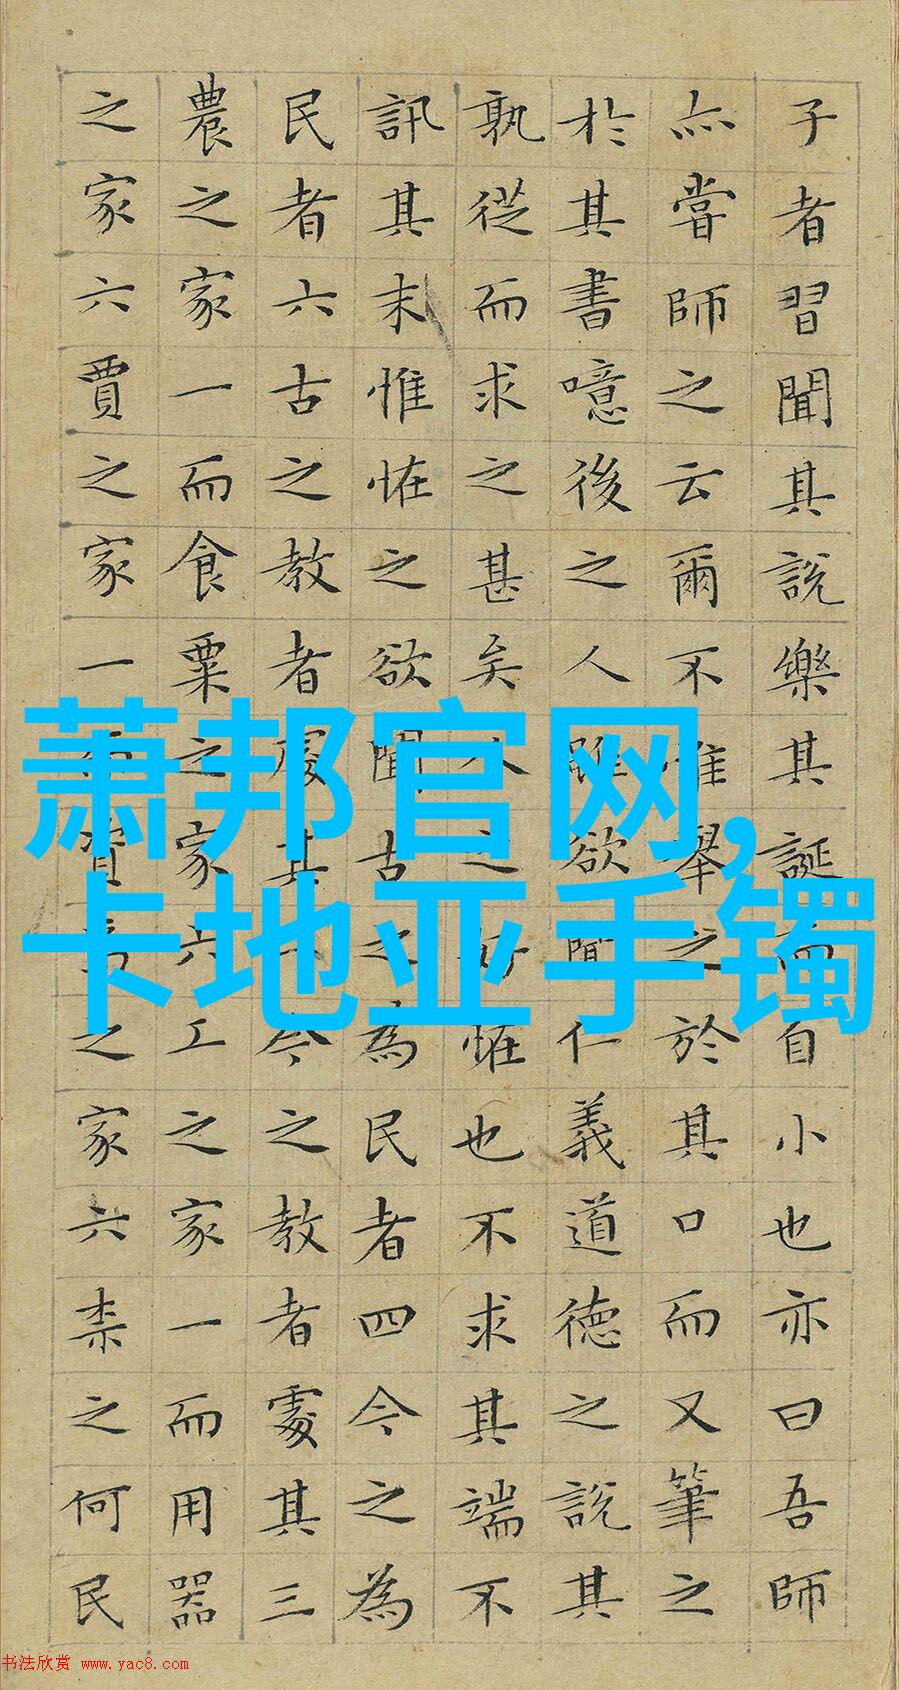 子者習聞其說樂其誕而自小也亦曰吾師
亦嘗師之云爾不惟舉之於其口而又筆之
於其書噫後之人雖欲聞仁義道德之說其
孰從而求之甚矣人之好恠也不求其端不
訊其末惟恠之欲聞古之為民者四今之為
民者六古之教者處其一今之教者處其三
農之家一而食粟之家六工之家一而用器
之家六賈之家一而資焉之家六柰之何民
萧邦官网,
卡地亚手镯
书法欣赏 www.yac8.com